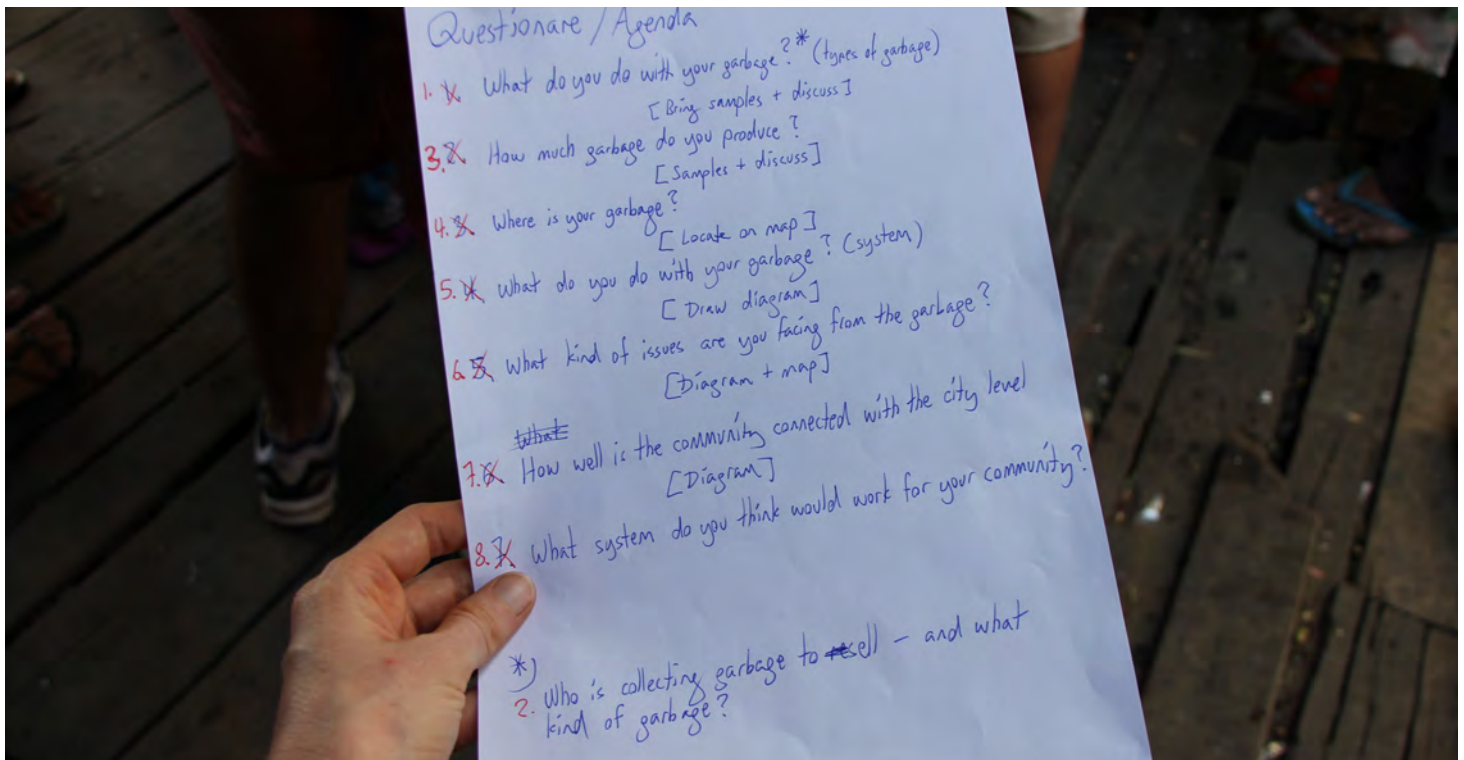 Questionare / Agenda
1. What do you do with your garbage?* (types of garbage)
[Bring samples + discuss]
3. How much garbage do you produce?
[Samples + discuss]
4. Where is your garbage?
[Locate on map]
5. What do you do with your garbage? (system)
[Draw diagram]
6. What kind of issues are you facing from the garbage?
[Diagram + map]
What
7. How well is the community connected with the city level
[Diagram]
8. What system do you think would work for your community?
*)
2. Who is collecting garbage to sell – and what
kind of garbage?